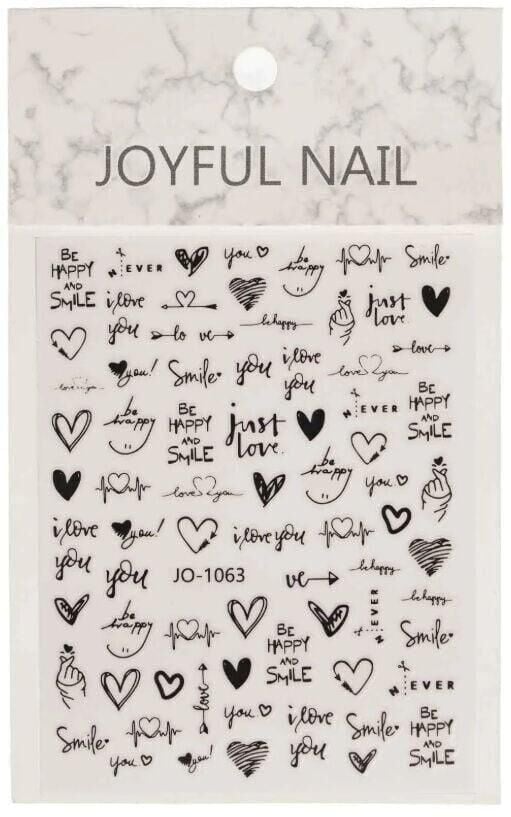 JOYFUL NAIL
BE
HAPPY
AND
SMILE
NEVER
you
be
happy
Smile
i love
you
just
love.
be happy
lo ve
love
you!
Smile
you
i love
you
love you
love is you
be
happy
BE
HAPPY
AND
SMILE
just
love.
NEVER
BE
HAPPY
AND
SMILE
be
happy
love you
you
i love
you
you!
i love you
you
JO-1063
ve
be happy
be happy
be
happy
BE
HAPPY
AND
SMILE
NEVER
Smile
love
NEVER
Smile
you
i love
you
Smile
BE
HAPPY
AND
SMILE
you
you!